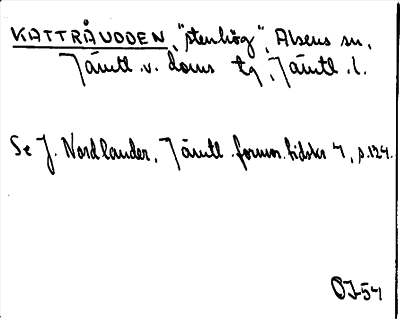 KATTRÅUDDEN, "stenhög", Alsens sn,
Jämtl. v. doms tg, Jämtl. l.
Se J. Nordlander, Jämtl. fornm. tidskr 4, p. 124.
OJ-54